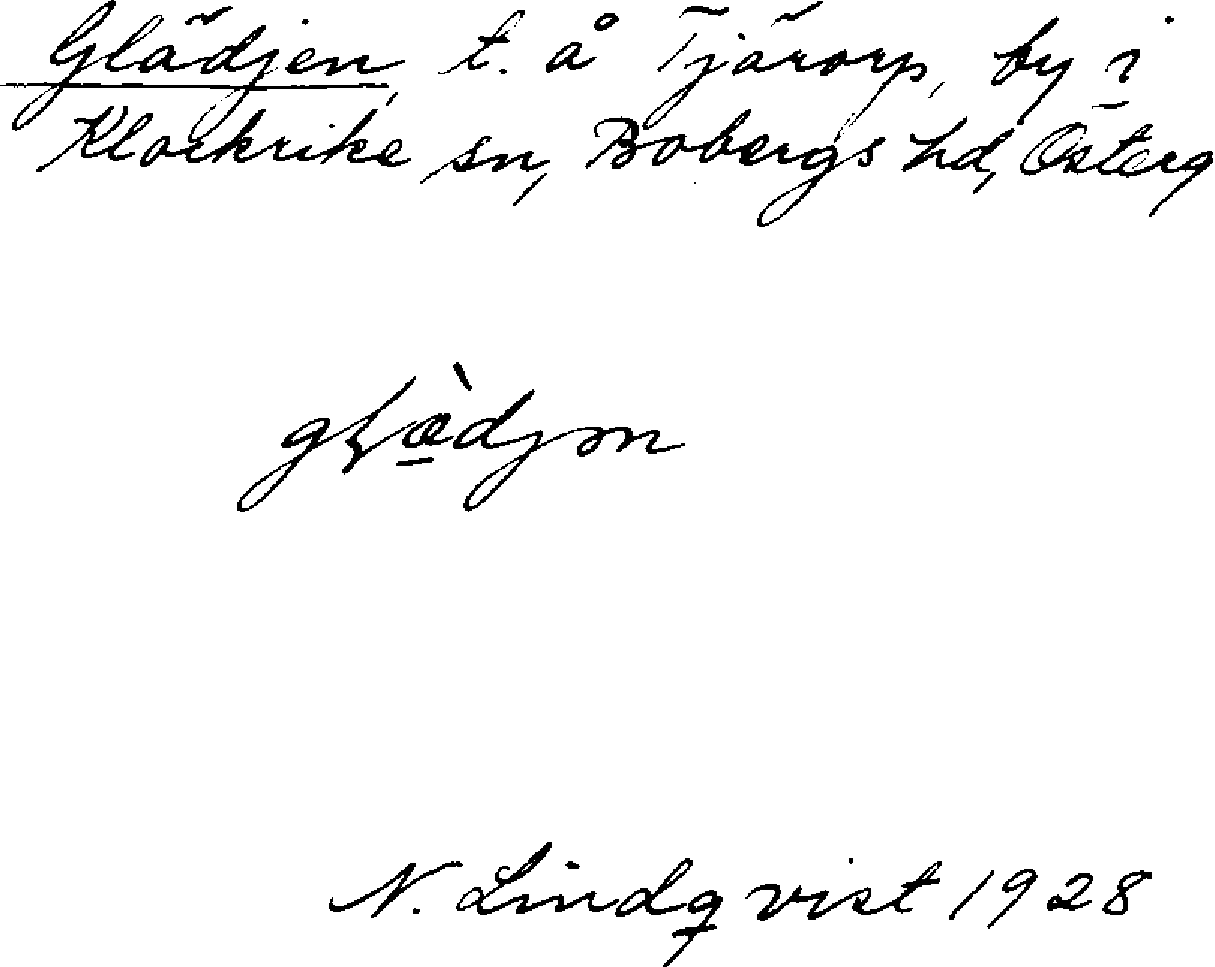 Glädjen, t. å Tjärorp, by i
Klockrike sn, Bobergs hd, Österg
N. Lindqvist 1928